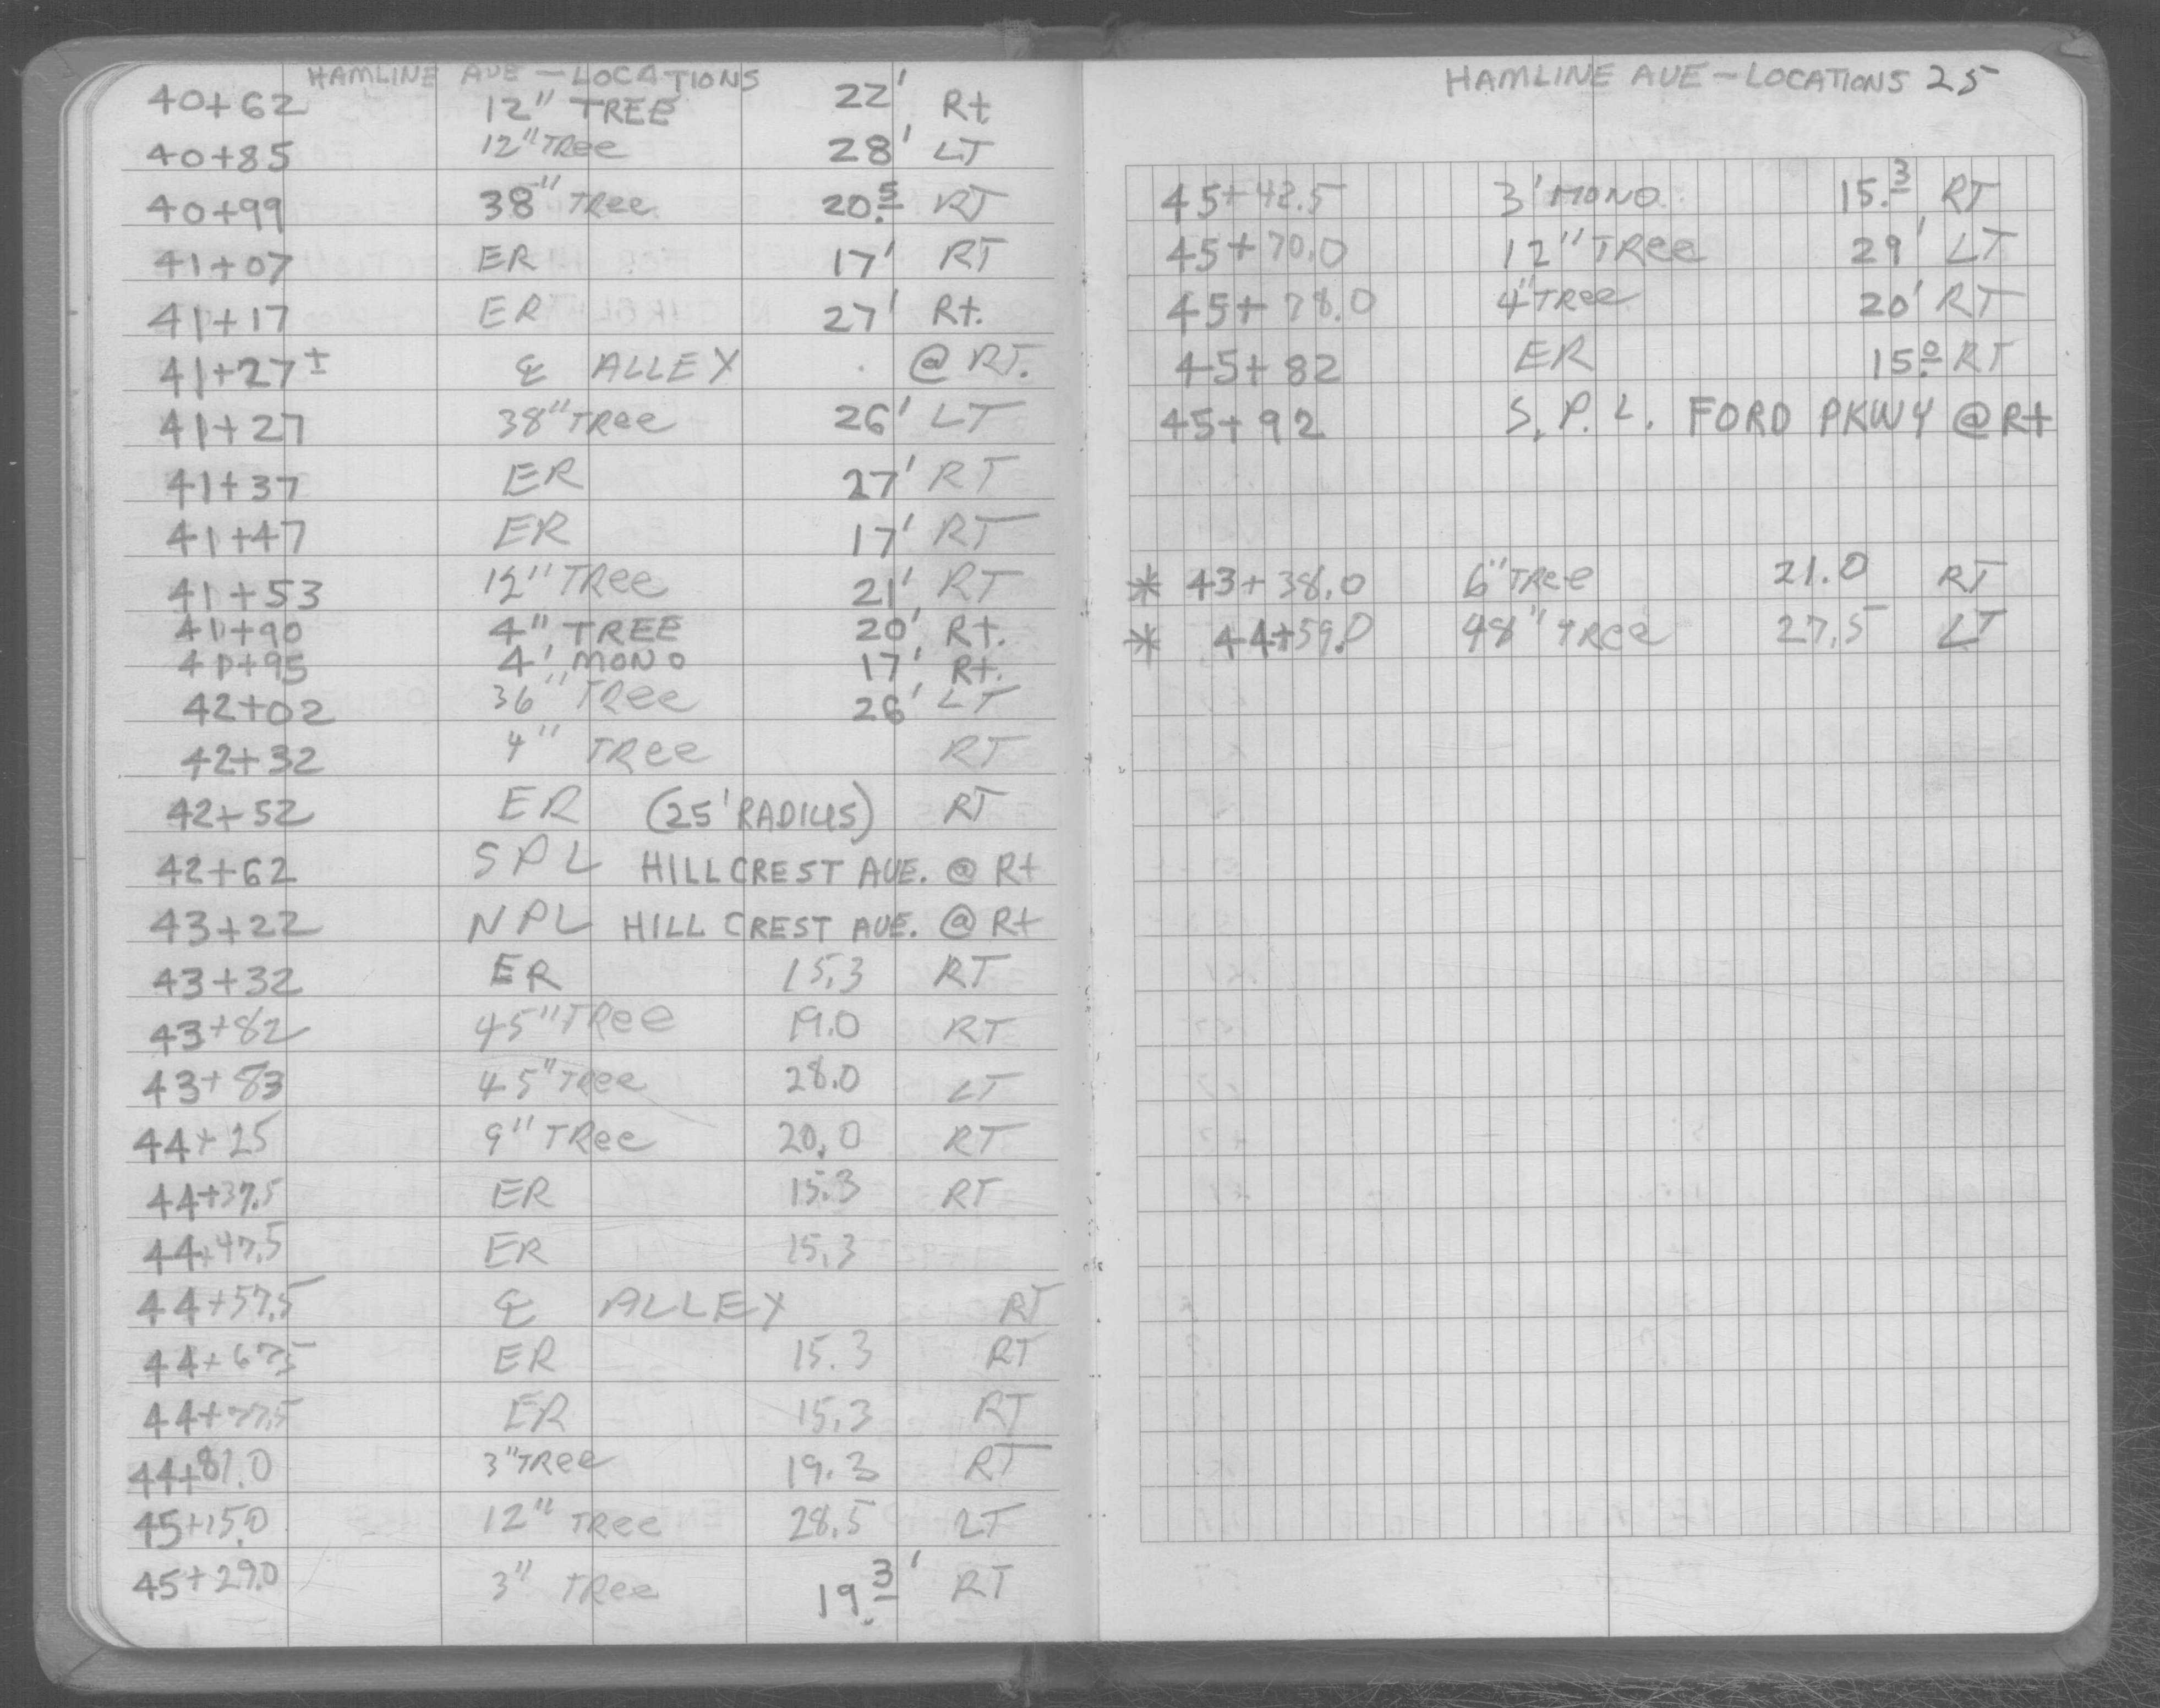 HAMLINE AVE - LOCATIONS
40+62 12" TREE 22' Rt
40+85 12" TRee 28' LT
40+99 38" TRee 20.5 RT
41+07 ER 17' RT
41+17 ER 27' Rt.
41+27± ℄ ALLEY @ RT.
41+27 38" TRee 26' LT
41+37 ER 27' RT
41+47 ER 17' RT
41+53 12" TRee 21' RT
41+90 4" TREE 20' Rt.
41+95 4' MONO 17' Rt.
42+02 36" TRee 26' LT
42+32 4" TRee RT
42+52 ER (25' RADIUS) RT
42+62 SPL HILLCREST AVE. @ Rt
43+22 NPL HILL CREST AVE. @ Rt
43+32 ER 15.3 RT
43+82 45" TRee 19.0 RT
43+83 45" TRee 28.0 LT
44+25 9" TRee 20.0 RT
44+37.5 ER 15.3 RT
44+47.5 ER 15.3
44+57.5 ℄ ALLEY RT
44+67.5 ER 15.3 RT
44+77.5 ER 15.3 RT
44+81.0 3" TRee 19.3 RT
45+15.0 12" TRee 28.5 LT
45+29.0 3" TRee 19.3' RT
HAMLINE AVE - LOCATIONS 25
45+42.5 3' MONO 15.3 RT
45+70.0 12" TRee 29' LT
45+78.0 4" TRee 20' RT
45+82 ER 15.0 RT
45+92 S.P.L. FORD PKWY @ Rt
* 43+38.0 6" TRee 21.0 RT
* 44+59.0 48" TRee 27.5 LT